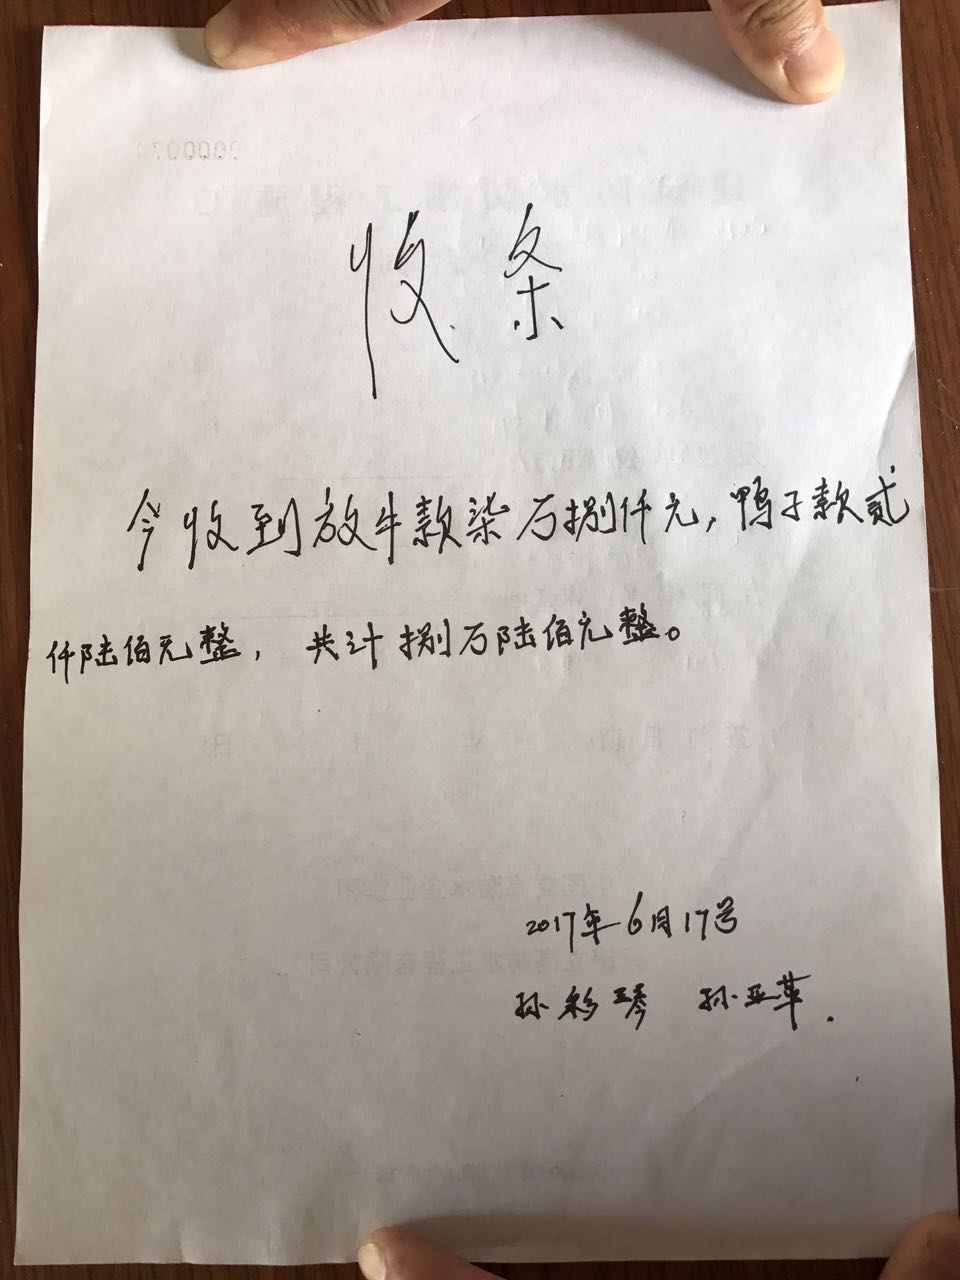 收条
今收到放牛款柒万捌仟元，鸭子款贰
仟陆佰元整，共计捌万陆佰元整。
2017年6月17号
孙彩琴 孙亚革.